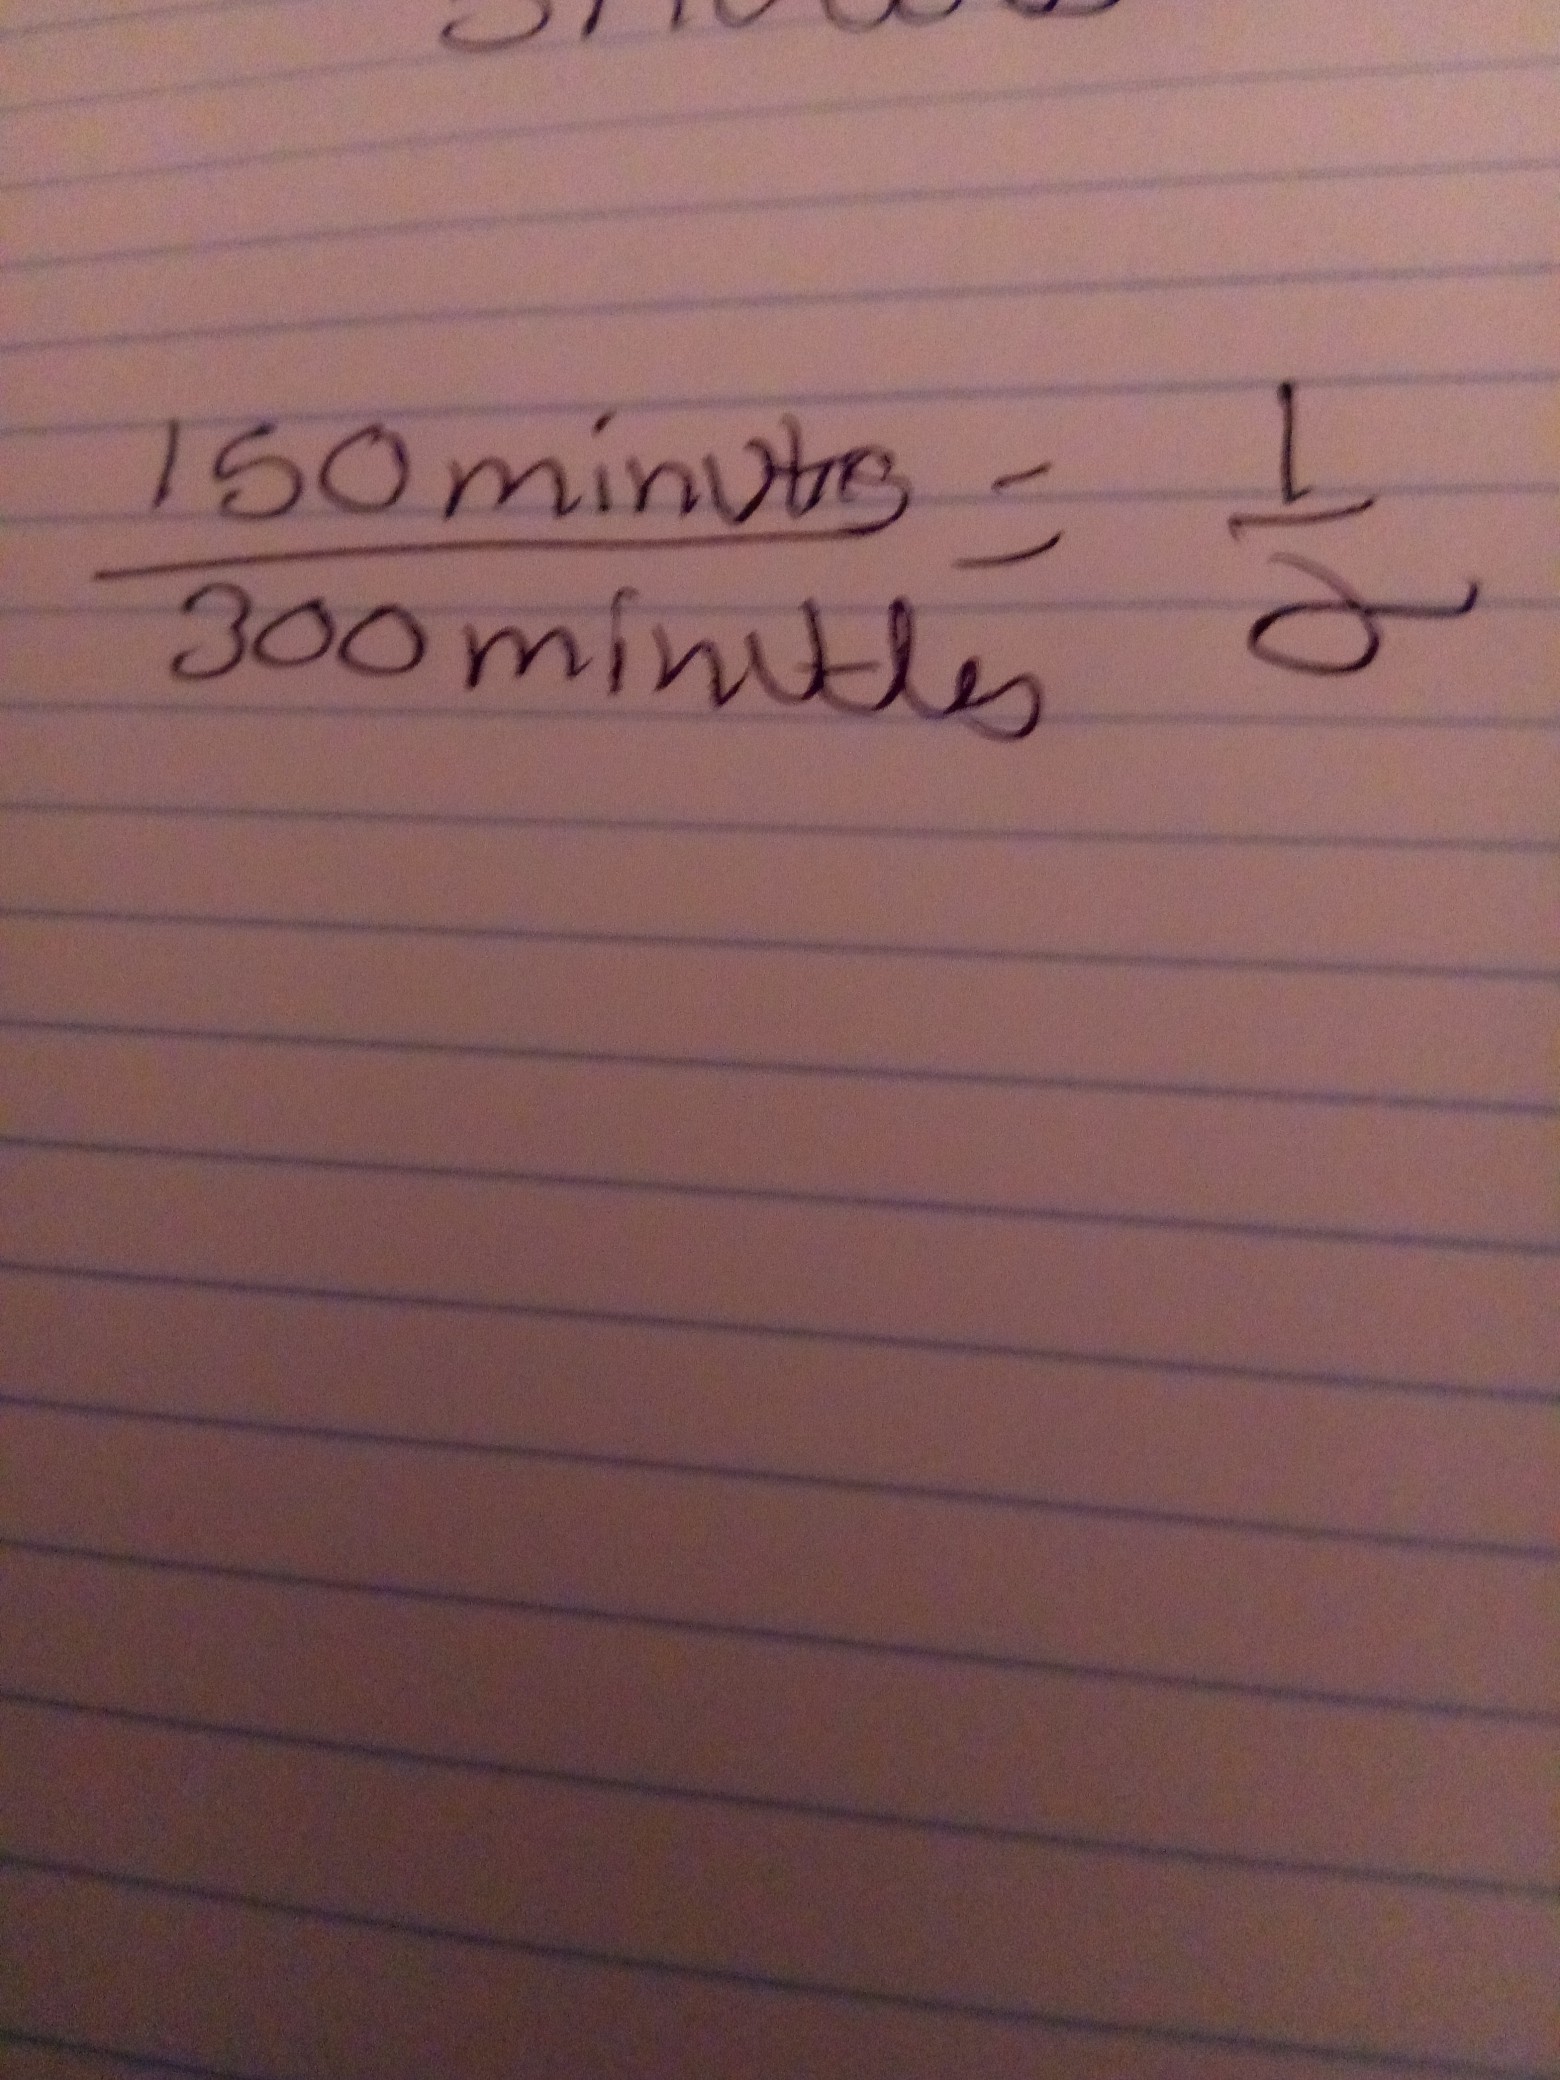 150 minutes = 1/2
300 minutes